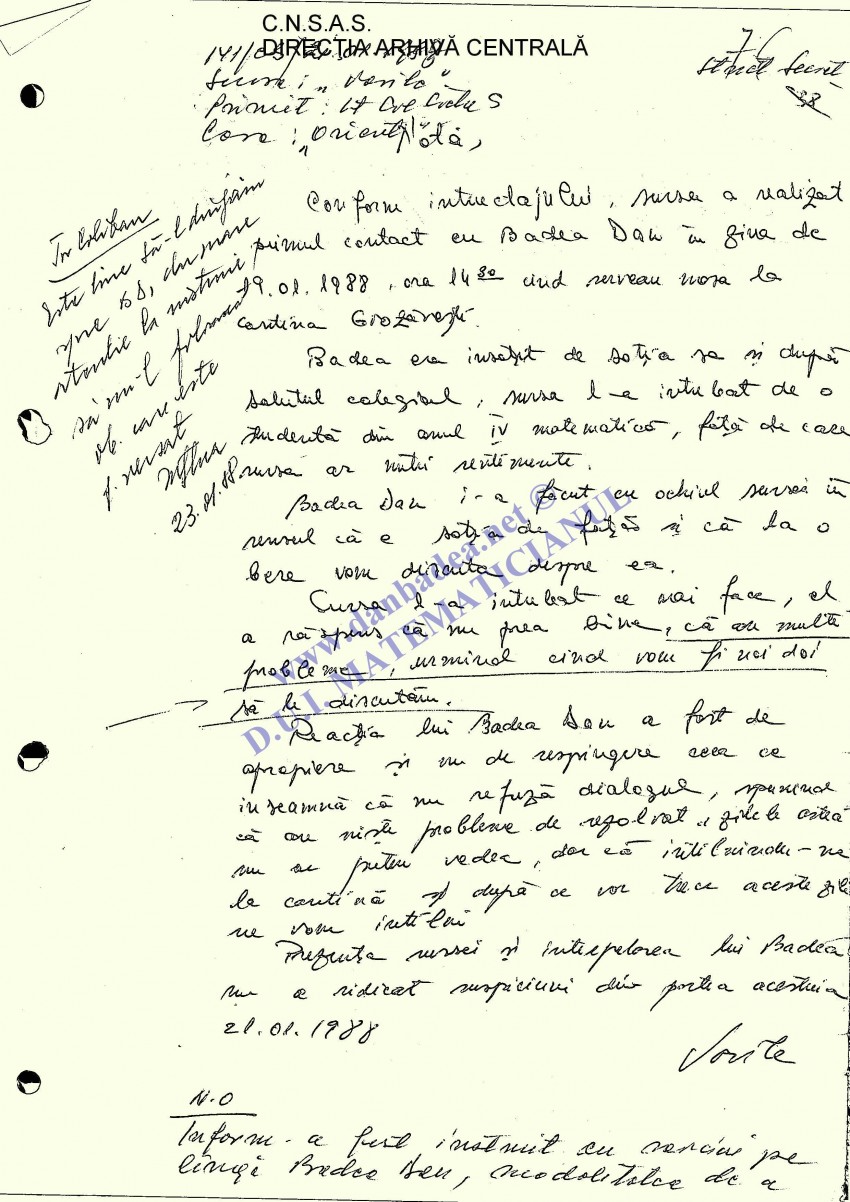 C.N.S.A.S.
DIRECŢIA ARHIVĂ CENTRALĂ
Strict Secret
38
Sursa: „Vasile"
Primit: Lt Col S
Casa: „Orient"
Notă,
Conform instructajului, sursa a realizat
primul contact cu Badea Dan în ziua de
19.01.1988, ora 14 30 cînd serveau masa la
cantina Grozăvești.
Badea era însoțit de soția sa și după
salutul colegial, sursa l-a întrebat de o
studentă din anul IV matematică, față de care
sursa ar nutri sentimente.
Badea Dan i-a făcut cu ochiul sursei în
sensul că e soția de față și că la o
bere vom discuta despre ea.
Sursa l-a întrebat ce mai face, el
a răspuns că nu prea bine, că are multe
probleme, urmînd cînd vom fi noi doi
să le discutăm.
Reacția lui Badea Dan a fost de
apropiere și nu de respingere ceea ce
înseamnă că nu refuză dialogul, spunînd
că are niște probleme de rezolvat, zilele astea
nu ne putem vedea, dar că întîlnindu-ne
la cantină și după ce vor trece aceste zile
ne vom întîlni
Prezența sursei și interpelarea lui Badea
nu a ridicat suspiciuni din partea acestuia
21.01.1988
Vasile
Tv. Coliban
Este bine să-l dirijăm
spre BD, dar mare
atenție la instruire
să nu-l folosească
ob. care este
f. versat
23.01.88
www.danbadea.net ©
D.U.I. MATEMATICIANUL
N.O
Inform. a fost instruit cu sarcini pe
lîngă Badea Dan, modalitatea de a